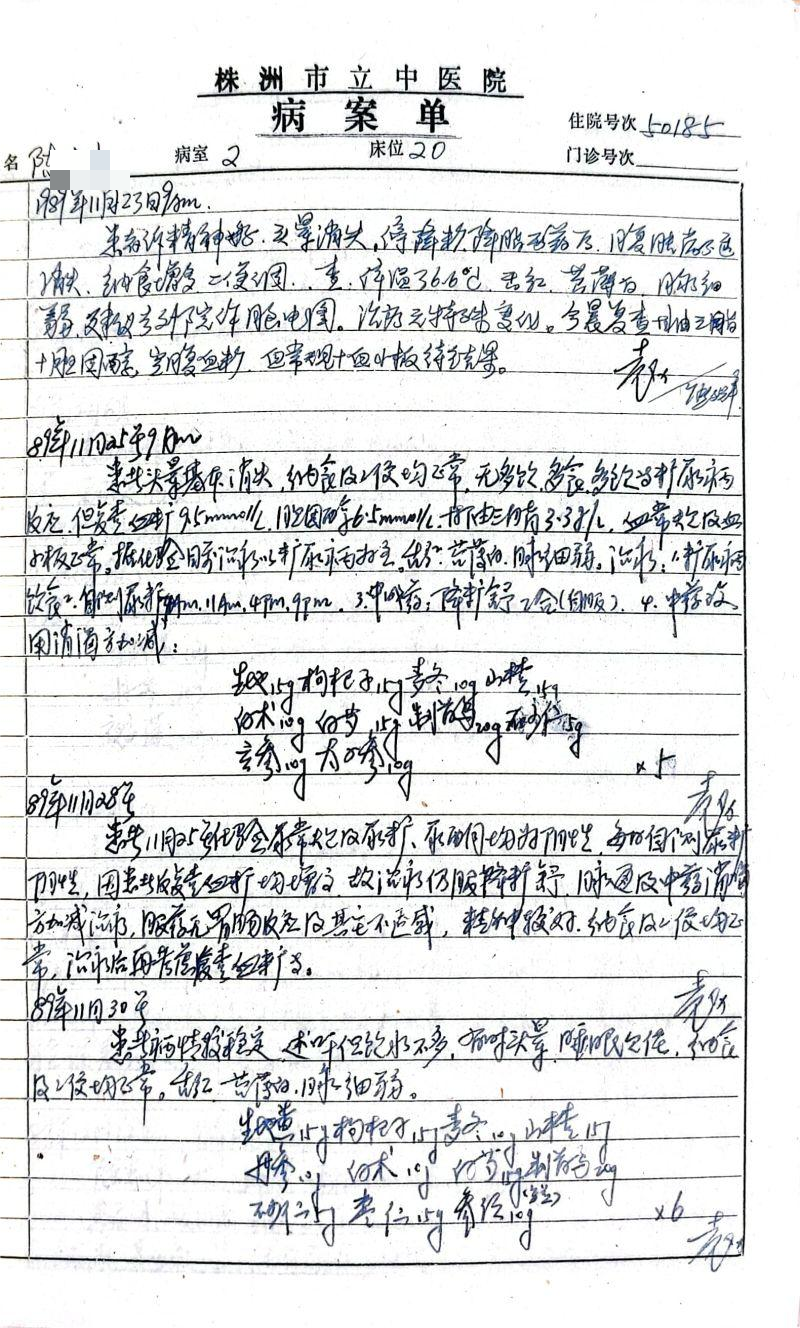 株洲市立中医院
病案单
住院号次 50185
名 陈 病室 2 床位 20 门诊号次
1989年11月23日9Am.
患者诉精神好、头晕消失,停降 降脂 药后,腹胀 已
消失、纳食增多、二便调。查:体温36.6℃,舌红、苔薄白、脉细
弱, 院作脑电图。治疗无特殊变化。今晨复查甘油三酯
+胆固醇、空腹血糖、血常规+血小板待结果。
89年11月25号9Am
患者头晕基本消失,纳食及二便均正常,无多饮、多食、多 等糖尿病
反应,但复查血糖9.5mmol/L,胆固醇6.5mmol/L,甘油三酯3.3g/L,血常规及血
小板正常。据化验目前治疗以糖尿病为主。舌红、苔薄白、脉细弱。治疗:1.糖尿病
饮食2. 尿糖 11Am、4pm、9pm. 3.中成药:降糖舒2合(自服). 4.中药改
用消渴方加减:
生地15g 枸杞子15g 麦冬10g 山楂15g
白术10g 白芍15g 制首乌20g 砂仁5g
玄参10g 太子参10g
×5
89年11月28号
患者11月25号化验尿常规及尿糖、尿酮体均为阴性,每日自测尿糖
阴性,因患者反复查血糖均增高,故治疗仍服降糖舒、脉通及中药消渴
方加减治疗,服药无胃肠反应及其它不适感,精神较好、纳食及二便均正
常,治疗后再考虑复查血糖等。
89年11月30号
患者病情较稳定,述口干但饮水不多,有时头晕,睡眠欠佳,纳食
及二便均正常。舌红、苔薄白、脉细弱。
生地黄15g 枸杞子15g 麦冬10g 山楂15g
丹参10g 白术10g 白芍15g 制首乌20g
砂仁5g 枣仁15g
×6